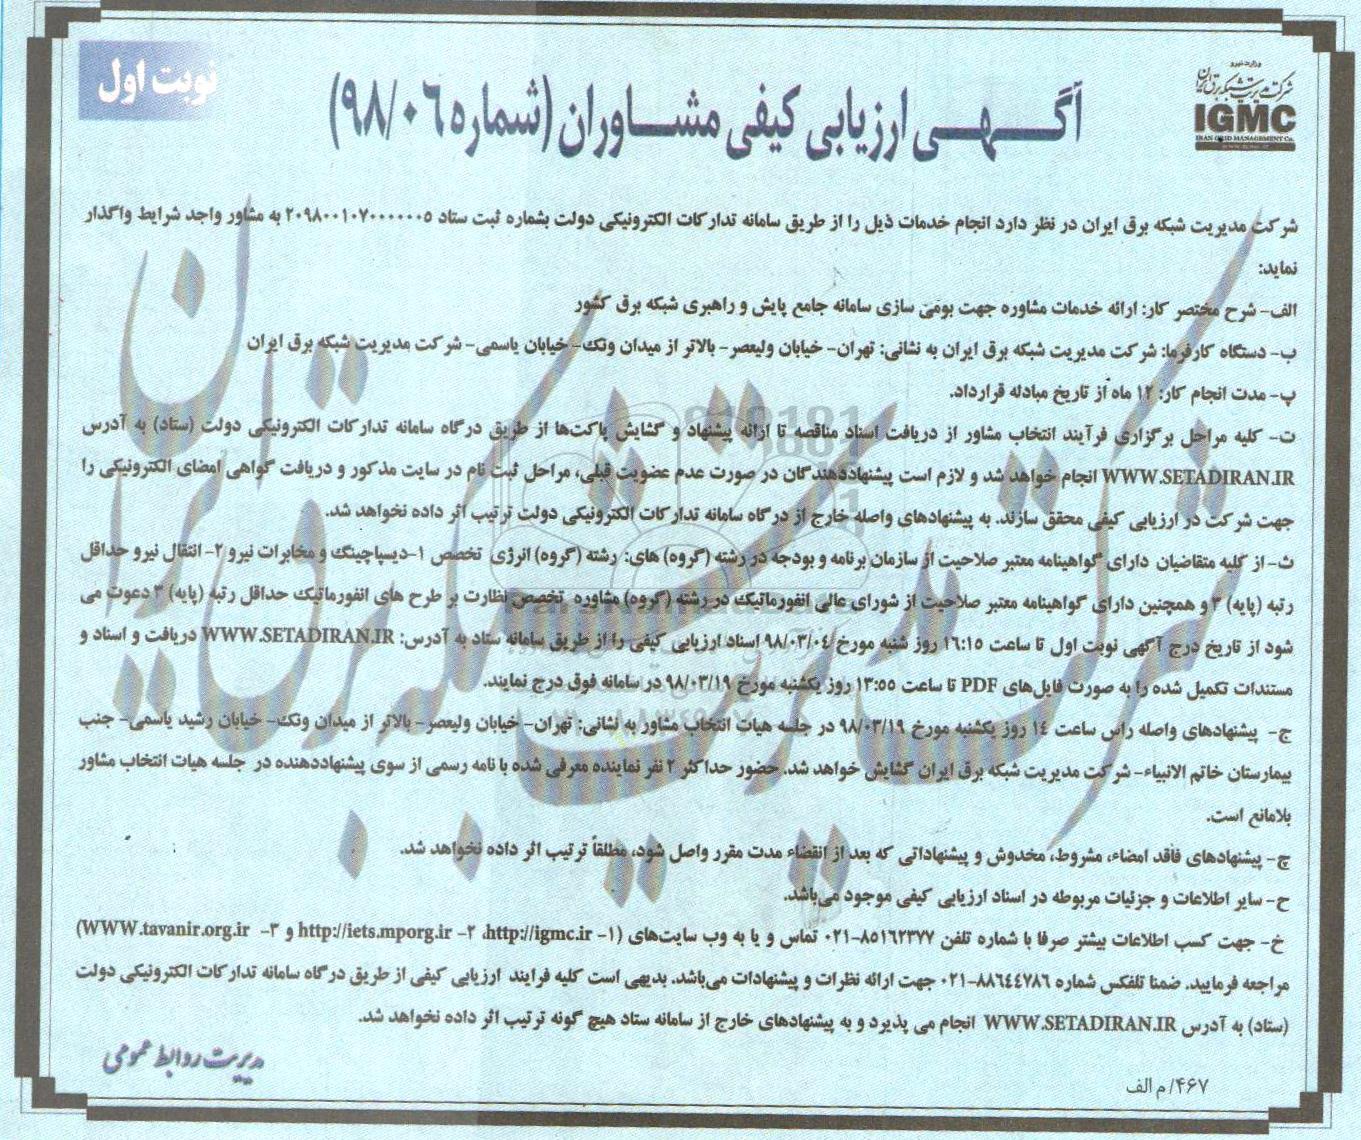 نوبت اول
وزارت نیرو
شرکت مدیریت شبکه برق ایران
IGMC
IRAN GRID MANAGEMENT Co.
آگهی ارزیابی کیفی مشاوران (شماره ۹۸/۰۶)
شرکت مدیریت شبکه برق ایران در نظر دارد انجام خدمات ذیل را از طریق سامانه تدارکات الکترونیکی دولت بشماره ثبت ستاد ۲۰۹۸۰۰۱۰۷۰۰۰۰۰۰۵ به مشاور واجد شرایط واگذار
نماید:
الف- شرح مختصر کار: ارائه خدمات مشاوره جهت بومی سازی سامانه جامع پایش و راهبری شبکه برق کشور
ب- دستگاه کارفرما: شرکت مدیریت شبکه برق ایران به نشانی: تهران- خیابان ولیعصر- بالاتر از میدان ونک- خیابان یاسمی- شرکت مدیریت شبکه برق ایران
پ- مدت انجام کار: ۱۲ ماه از تاریخ مبادله قرارداد.
ت- کلیه مراحل برگزاری فرآیند انتخاب مشاور از دریافت اسناد مناقصه تا ارائه پیشنهاد و گشایش پاکت‌ها از طریق درگاه سامانه تدارکات الکترونیکی دولت (ستاد) به آدرس
WWW.SETADIRAN.IR انجام خواهد شد و لازم است پیشنهاددهندگان در صورت عدم عضویت قبلی، مراحل ثبت نام در سایت مذکور و دریافت گواهی امضای الکترونیکی را
جهت شرکت در ارزیابی کیفی محقق سازند. به پیشنهادهای واصله خارج از درگاه سامانه تدارکات الکترونیکی دولت ترتیب اثر داده نخواهد شد.
ث- از کلیه متقاضیان دارای گواهینامه معتبر صلاحیت از سازمان برنامه و بودجه در رشته (گروه) های: رشته (گروه) انرژی تخصص ۱-دیسپاچینگ و مخابرات نیرو ۲- انتقال نیرو حداقل
رتبه (پایه) ۳ و همچنین دارای گواهینامه معتبر صلاحیت از شورای عالی انفورماتیک در رشته (گروه) مشاوره تخصص نظارت بر طرح های انفورماتیک حداقل رتبه (پایه) ۳ دعوت می
شود از تاریخ درج آگهی نوبت اول تا ساعت ۱۶:۱۵ روز شنبه مورخ ۹۸/۰۳/۰۴ اسناد ارزیابی کیفی را از طریق سامانه ستاد به آدرس: WWW.SETADIRAN.IR دریافت و اسناد و
مستندات تکمیل شده را به صورت فایل‌های PDF تا ساعت ۱۳:۵۵ روز یکشنبه مورخ ۹۸/۰۳/۱۹ در سامانه فوق درج نمایند.
ج- پیشنهادهای واصله راس ساعت ۱۴ روز یکشنبه مورخ ۹۸/۰۳/۱۹ در جلسه هیات انتخاب مشاور به نشانی: تهران- خیابان ولیعصر- بالاتر از میدان ونک- خیابان رشید یاسمی- جنب
بیمارستان خاتم الانبیاء- شرکت مدیریت شبکه برق ایران گشایش خواهد شد. حضور حداکثر ۲ نفر نماینده معرفی شده با نامه رسمی از سوی پیشنهاددهنده در جلسه هیات انتخاب مشاور
بلامانع است.
چ- پیشنهادهای فاقد امضاء، مشروط، مخدوش و پیشنهاداتی که بعد از انقضاء مدت مقرر واصل شود، مطلقاً ترتیب اثر داده نخواهد شد.
ح- سایر اطلاعات و جزئیات مربوطه در اسناد ارزیابی کیفی موجود می‌باشد.
خ- جهت کسب اطلاعات بیشتر صرفا با شماره تلفن ۸۵۱۶۲۳۷۷-۰۲۱ تماس و یا به وب سایت‌های (۱- http://igmc.ir، ۲- http://iets.mporg.ir و ۳- WWW.tavanir.org.ir)
مراجعه فرمایید. ضمنا تلفکس شماره ۸۸۶۴۴۷۸۶-۰۲۱ جهت ارائه نظرات و پیشنهادات می‌باشد. بدیهی است کلیه فرایند ارزیابی کیفی از طریق درگاه سامانه تدارکات الکترونیکی دولت
(ستاد) به آدرس WWW.SETADIRAN.IR انجام می پذیرد و به پیشنهادهای خارج از سامانه ستاد هیچ گونه ترتیب اثر داده نخواهد شد.
مدیریت روابط عمومی
۴۶۷/م الف